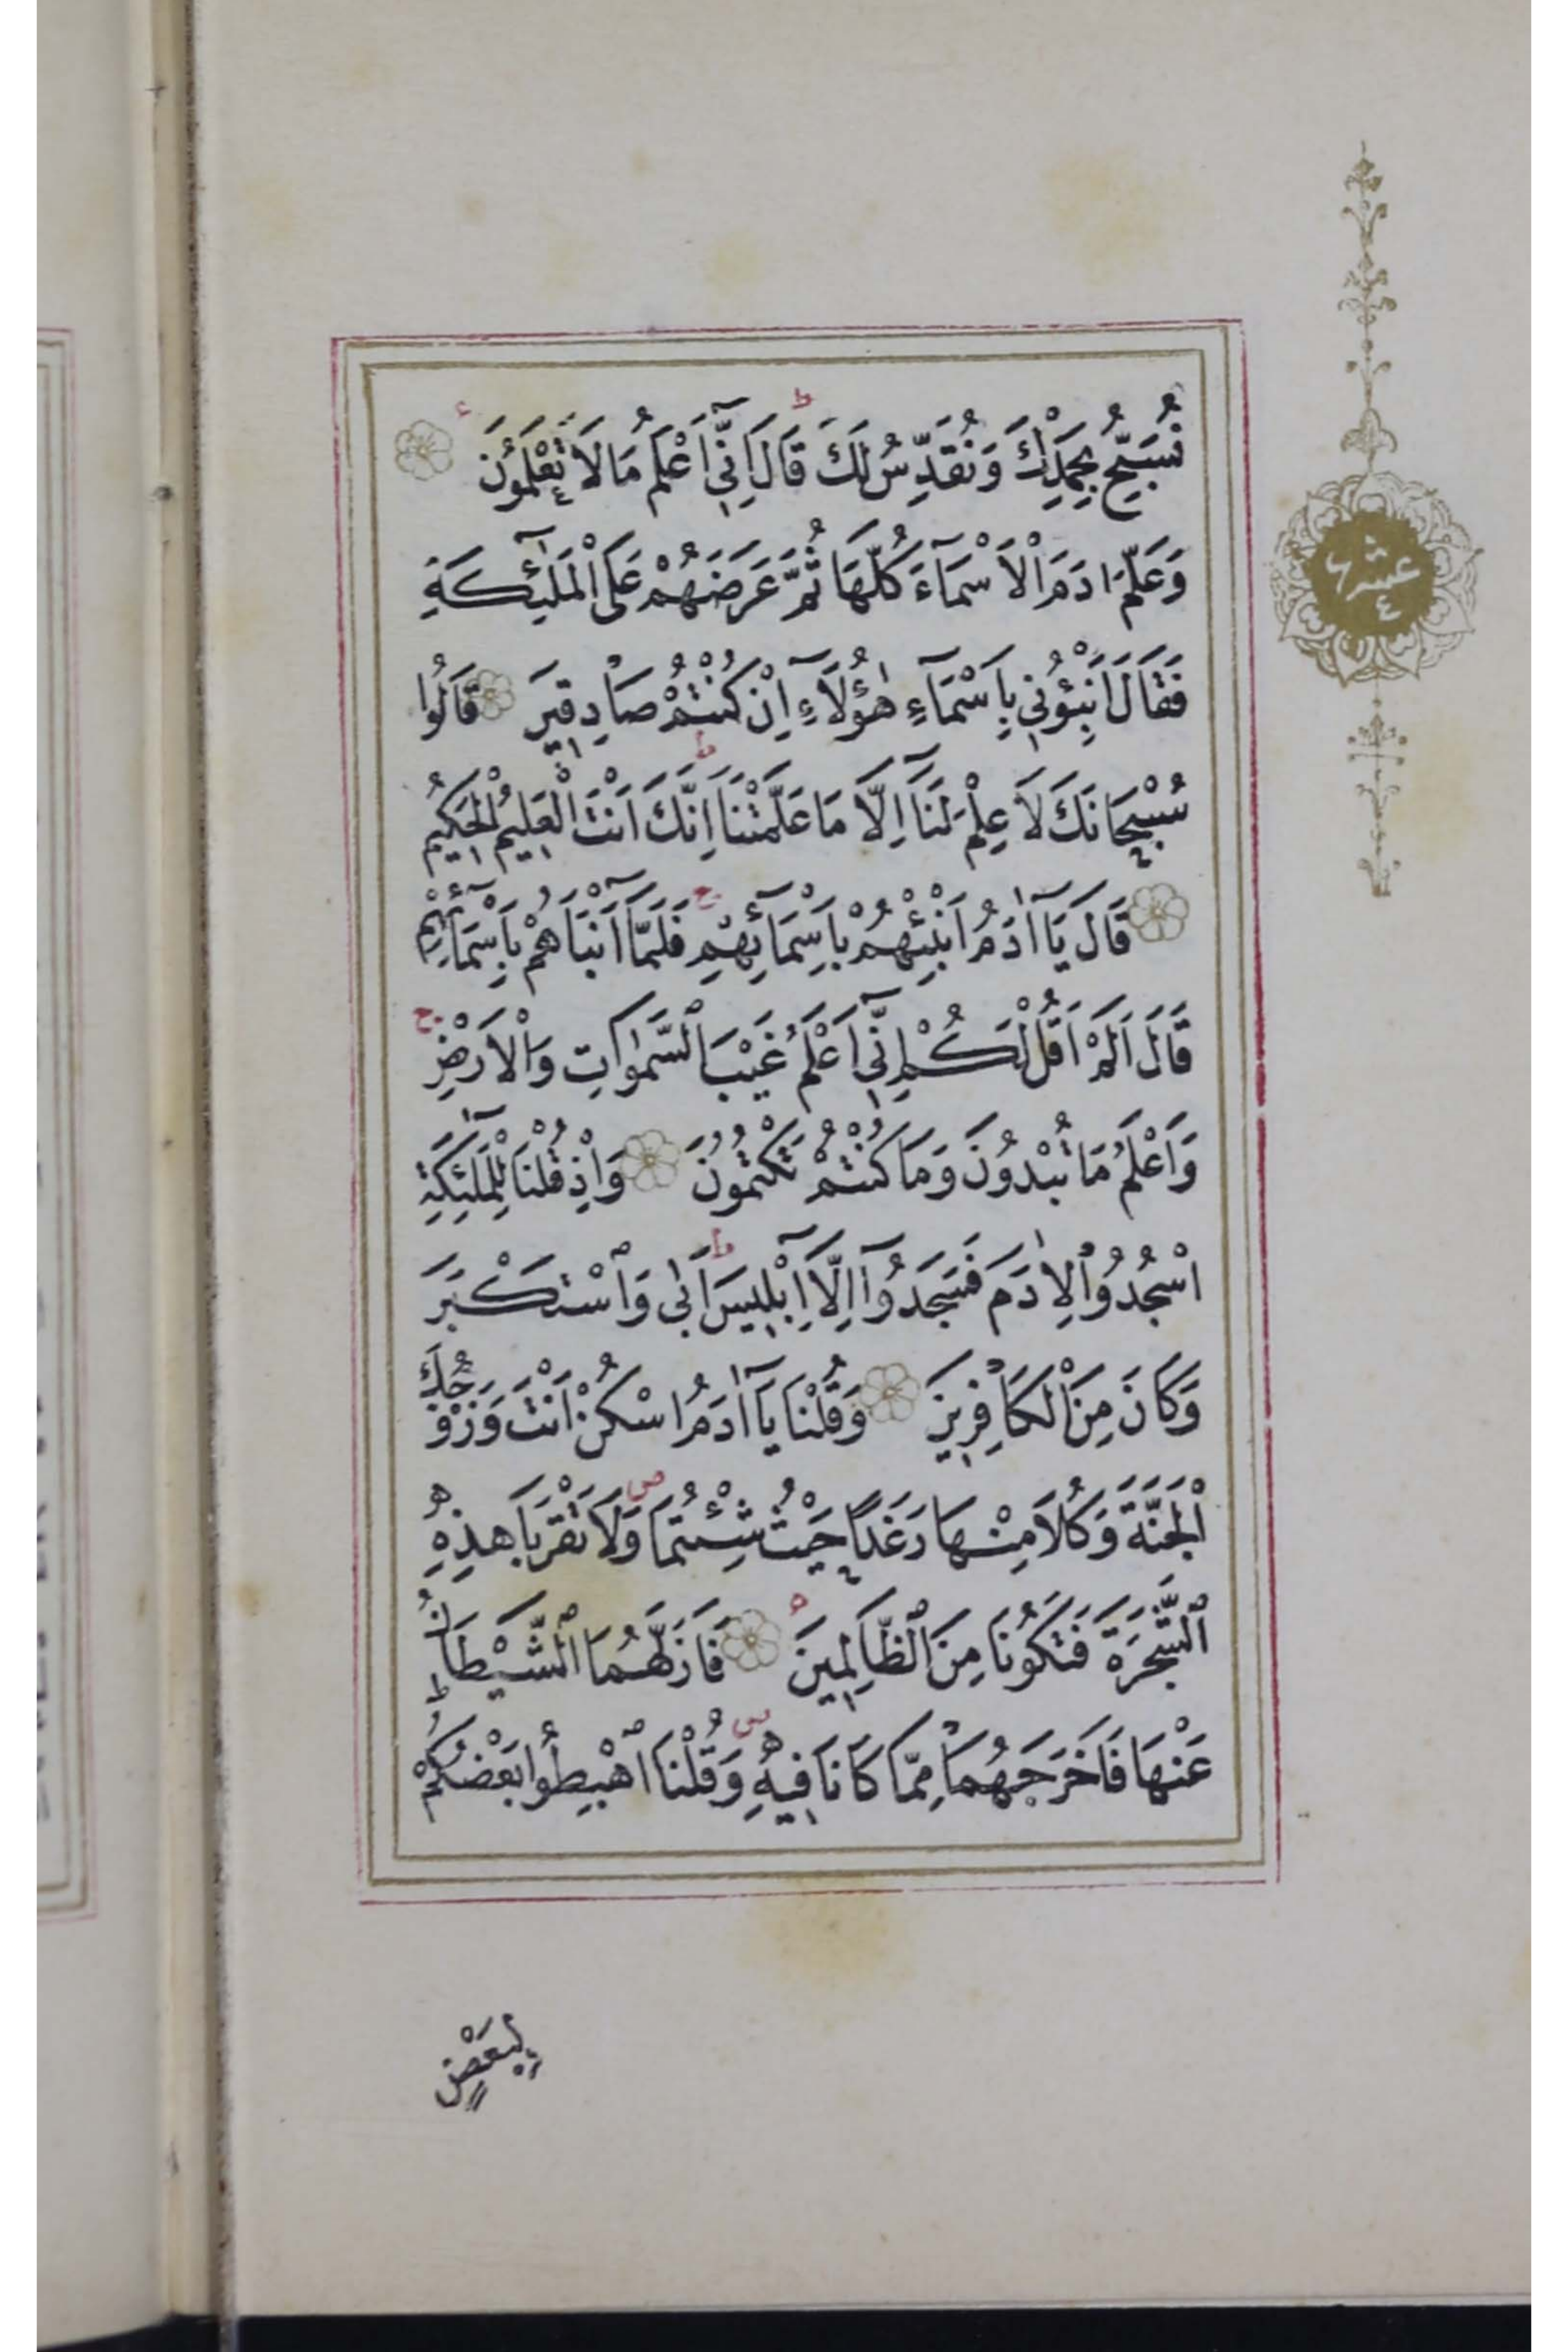 نُسَبِّحُ بِحَمْدِكَ وَنُقَدِّسُ لَكَ ط قَالَ اِنِّٓي اَعْلَمُ مَا لَا تَعْلَمُونَ ء
وَعَلَّمَ اٰدَمَ الْاَسْمَآءَ كُلَّهَا ثُمَّ عَرَضَهُمْ عَلَى الْمَلٰٓئِكَةِ
فَقَالَ اَنْبِئُونِي بِاَسْمَآءِ هٰٓؤُلَآءِ اِنْ كُنْتُمْ صَادِقِينَ قَالُوا
سُبْحَانَكَ لَا عِلْمَ لَنَٓا اِلَّا مَا عَلَّمْتَنَا ط اِنَّكَ اَنْتَ الْعَلِيمُ الْحَكِيمُ
قَالَ يَٓا اٰدَمُ اَنْبِئْهُمْ بِاَسْمَٓائِهِمْ ج فَلَمَّٓا اَنْبَاَهُمْ بِاَسْمَٓائِهِمْ
قَالَ اَلَمْ اَقُلْ لَكُمْ اِنِّٓي اَعْلَمُ غَيْبَ السَّمٰوَاتِ وَالْاَرْضِ ج
وَاَعْلَمُ مَا تُبْدُونَ وَمَا كُنْتُمْ تَكْتُمُونَ وَاِذْ قُلْنَا لِلْمَلٰٓئِكَةِ
اسْجُدُوا لِاٰدَمَ فَسَجَدُٓوا اِلَّٓا اِبْلِيسَ ط اَبٰى وَاسْتَكْبَرَ
وَكَانَ مِنَ الْكَافِرِينَ وَقُلْنَا يَٓا اٰدَمُ اسْكُنْ اَنْتَ وَزَوْجُكَ
الْجَنَّةَ وَكُلَا مِنْهَا رَغَدًا حَيْثُ شِئْتُمَا ص وَلَا تَقْرَبَا هٰذِهِ
الشَّجَرَةَ فَتَكُونَا مِنَ الظَّالِمِينَ ه فَاَزَلَّهُمَا الشَّيْطَانُ
عَنْهَا فَاَخْرَجَهُمَا مِمَّا كَانَا فِيهِ ص وَقُلْنَا اهْبِطُوا بَعْضُكُمْ
لِبَعْضٍ
عشر